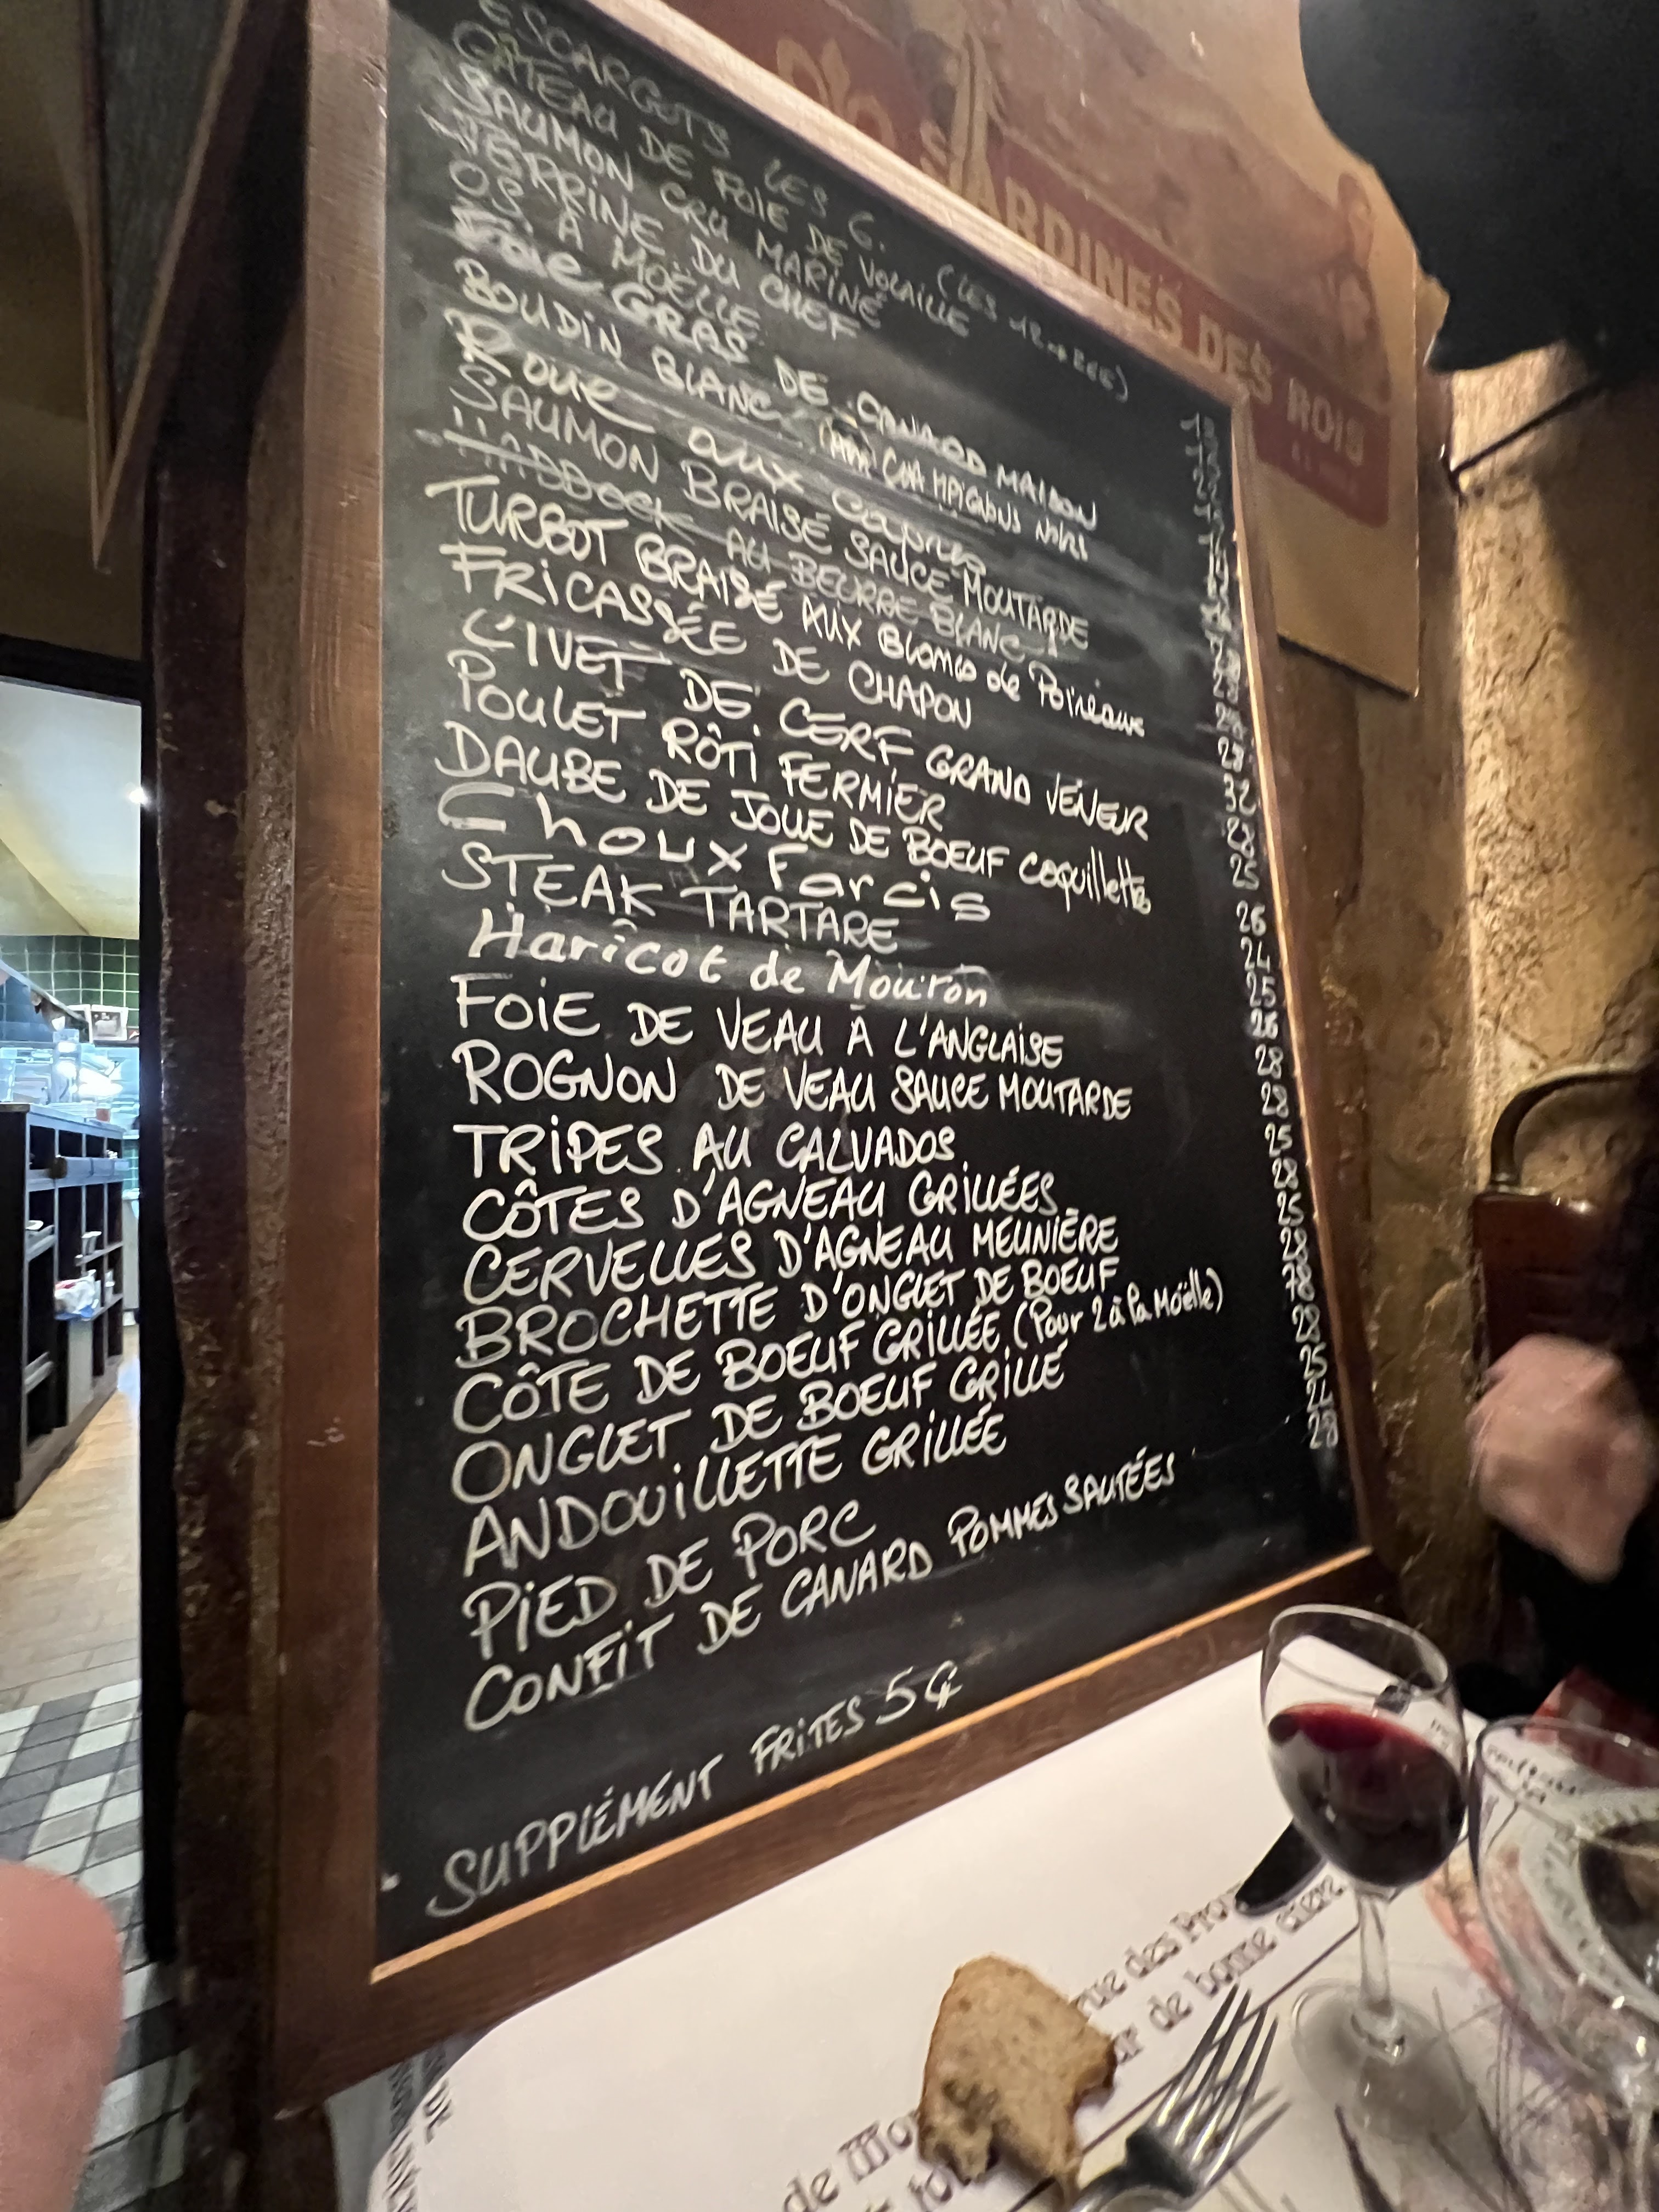 ESCARGOTS LES 6. (LES 12 → 26€)
GÂTEAU DE FOIE DE VOLAILLE
SAUMON CRU MARINÉ
TERRINE DU CHEF
OS À MOËLLE
Foie GRAS DE CANARD MAISON
BOUDIN BLANC CHAMPIGNONS
Raie aux capres
SAUMON BRAISÉ SAUCE MOUTARDE
HADDOCK AU BEURRE BLANC
TURBOT BRAISÉ AUX Blancs de Poireaux
FRICASSÉE DE CHAPON
CIVET DE CERF GRAND VENEUR
POULET RÔTI FERMIER
DAUBE DE JOUE DE BOEUF coquillettes
Choux Farcis
STEAK TARTARE
Haricot de Mouton
FOIE DE VEAU À L'ANGLAISE
ROGNON DE VEAU SAUCE MOUTARDE
TRIPES AU CALVADOS
CÔTES D'AGNEAU GRILLÉES
CERVELLES D'AGNEAU MEUNIÈRE
BROCHETTE D'ONGLET DE BOEUF
CÔTE DE BOEUF GRILLÉE (Pour 2 à la Moëlle)
ONGLET DE BOEUF GRILLÉ
ANDOUILLETTE GRILLÉE
PIED DE PORC
CONFIT DE CANARD POMMES SAUTÉES
SUPPLÉMENT FRITES 5€
28
32
28
25
26
24
25
26
28
28
25
28
25
28
78
28
25
24
28
SARDINES DES ROIS
rue des
de bonne chère
de